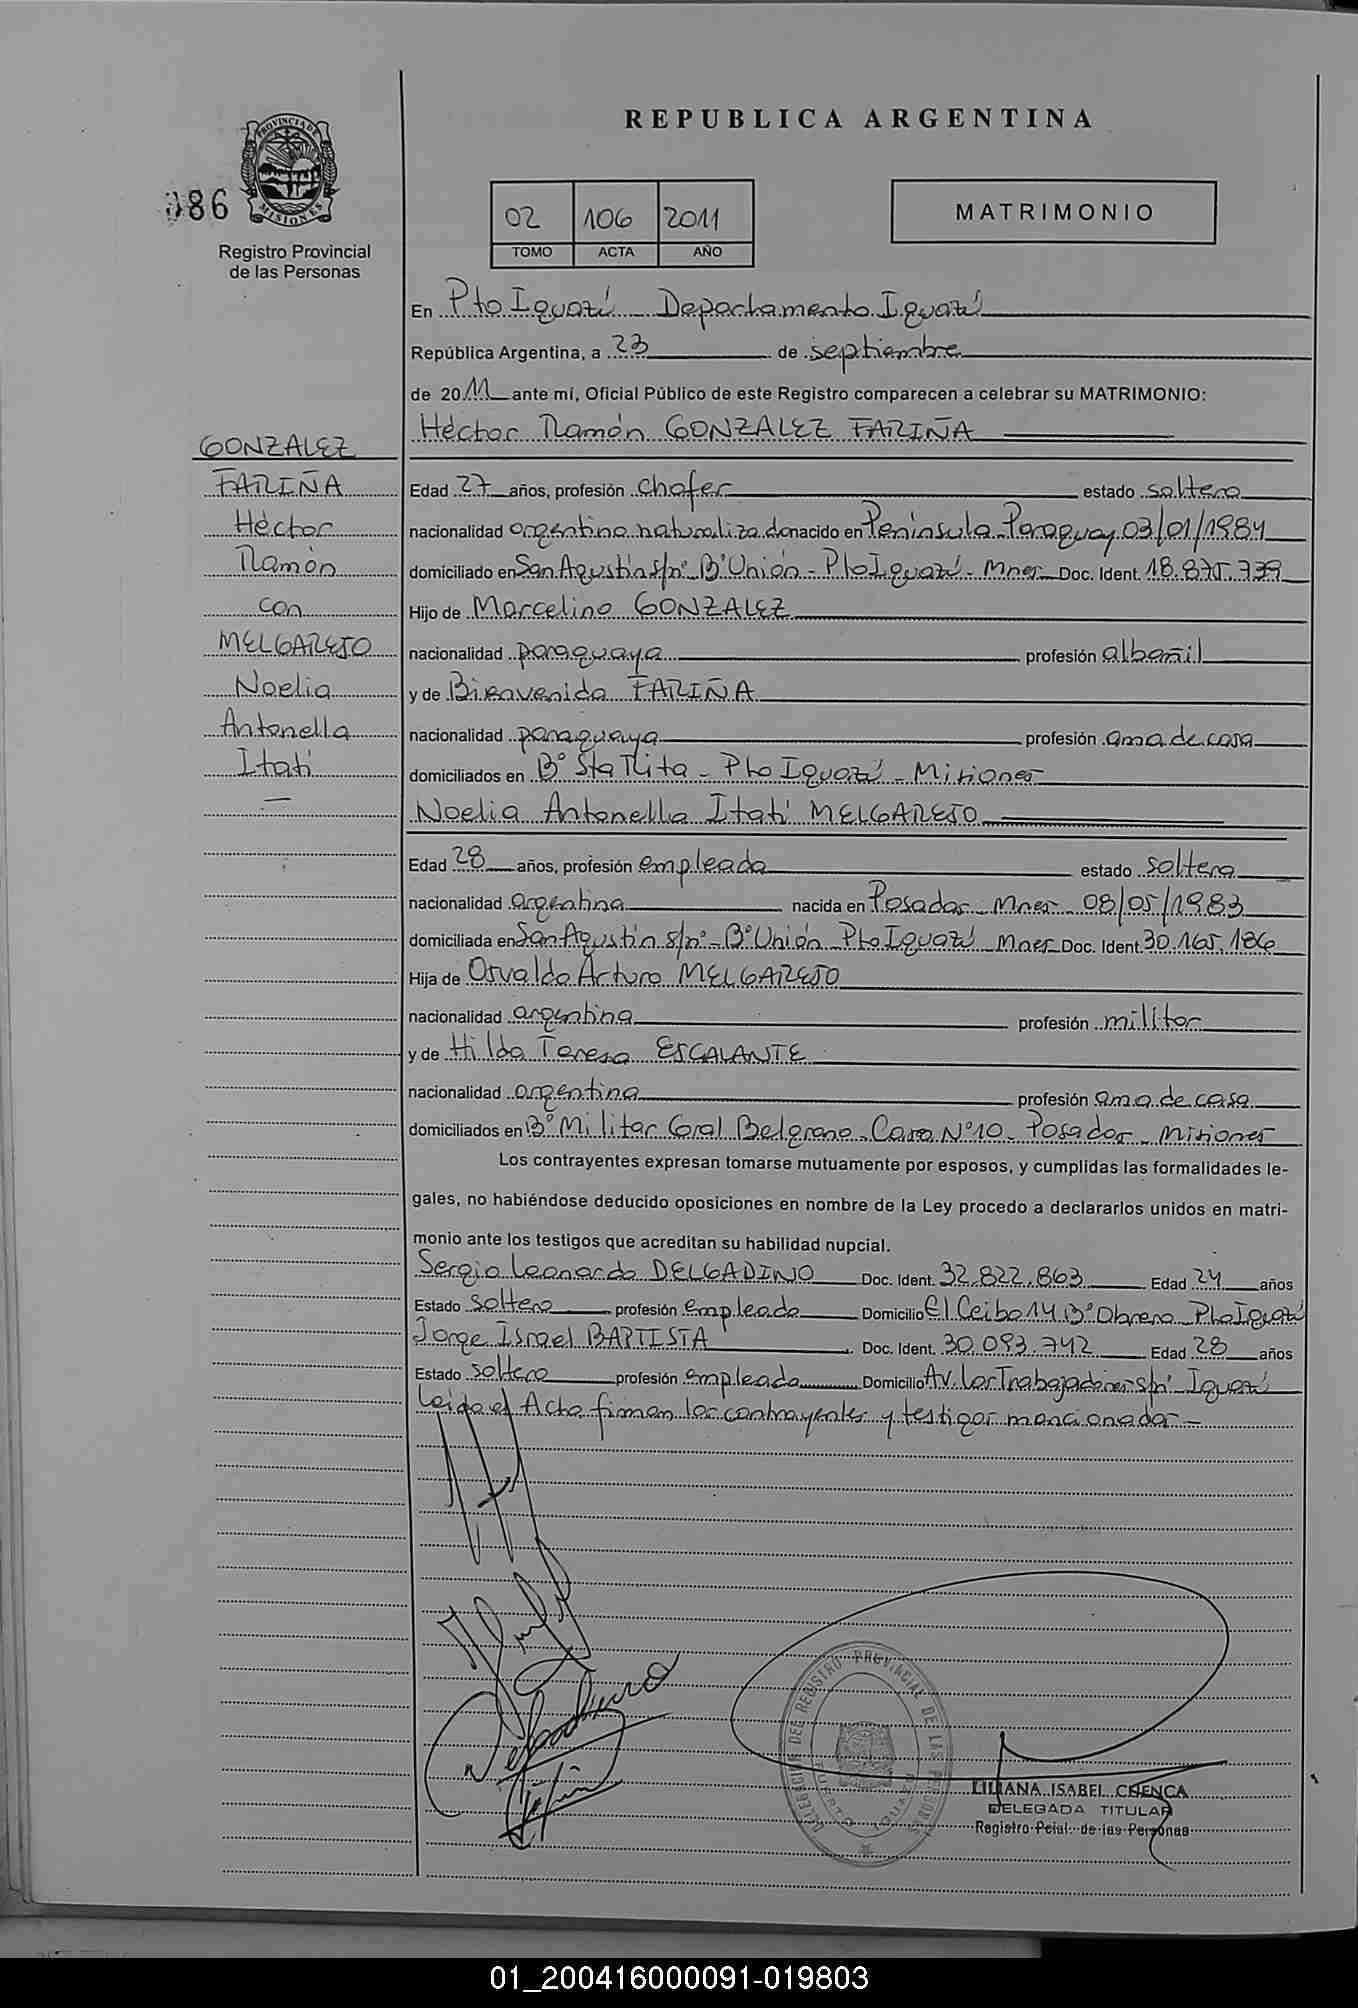 REPUBLICA ARGENTINA
PROVINCIA DE MISIONES
086
Registro Provincial
de las Personas
02 106 2011
TOMO ACTA AÑO
MATRIMONIO
En Pto Iguazú Departamento Iguazú
República Argentina, a 23 de septiembre
de 2011 ante mí, Oficial Público de este Registro comparecen a celebrar su MATRIMONIO:
Héctor Ramón GONZALEZ FARIÑA
GONZALEZ
FARIÑA
Héctor
Ramón
con
MELGAREJO
Noelia
Antonella
Itatí
—
Edad 27 años, profesión chofer estado soltero
nacionalidad argentino naturalizado nacido en Península - Paraguay 03/01/1984
domiciliado en San Agustín s/nº Bº Unión - Pto Iguazú - Mnes Doc. Ident. 18.875.739
Hijo de Marcelino GONZALEZ
nacionalidad paraguaya profesión albañil
y de Bienvenida FARIÑA
nacionalidad paraguaya profesión ama de casa
domiciliados en Bº Sta Rita - Pto Iguazú - Misiones
Noelia Antonella Itatí MELGAREJO
Edad 28 años, profesión empleada estado soltera
nacionalidad argentina nacida en Posadas - Mnes - 08/05/1983
domiciliada en San Agustín s/nº - Bº Unión Pto Iguazú Mnes Doc. Ident. 30.165.186
Hija de Osvaldo Arturo MELGAREJO
nacionalidad argentina profesión militar
y de Hilda Teresa ESCALANTE
nacionalidad argentina profesión ama de casa
domiciliados en Bº Militar Gral Belgrano - Casa Nº 10 - Posadas - Misiones
Los contrayentes expresan tomarse mutuamente por esposos, y cumplidas las formalidades le-
gales, no habiéndose deducido oposiciones en nombre de la Ley procedo a declararlos unidos en matri-
monio ante los testigos que acreditan su habilidad nupcial.
Sergio Leonardo DELGADINO Doc. Ident. 32.822.863 Edad 24 años
Estado soltero profesión empleado Domicilio El Ceibo 14 Bº Obrero Pto Iguazú
Jorge Israel BAPTISTA Doc. Ident. 30.093.742 Edad 28 años
Estado soltero profesión empleado Domicilio Av. Los Trabajadores s/nº Iguazú
Leído el Acta firman los contrayentes y testigos mencionados -
DELEGACION DEL REGISTRO PROVINCIAL DE LAS PERSONAS
PUERTO IGUAZU
LILIANA ISABEL CUENCA
DELEGADA TITULAR
Registro Pcial. de las Personas
01_200416000091-019803